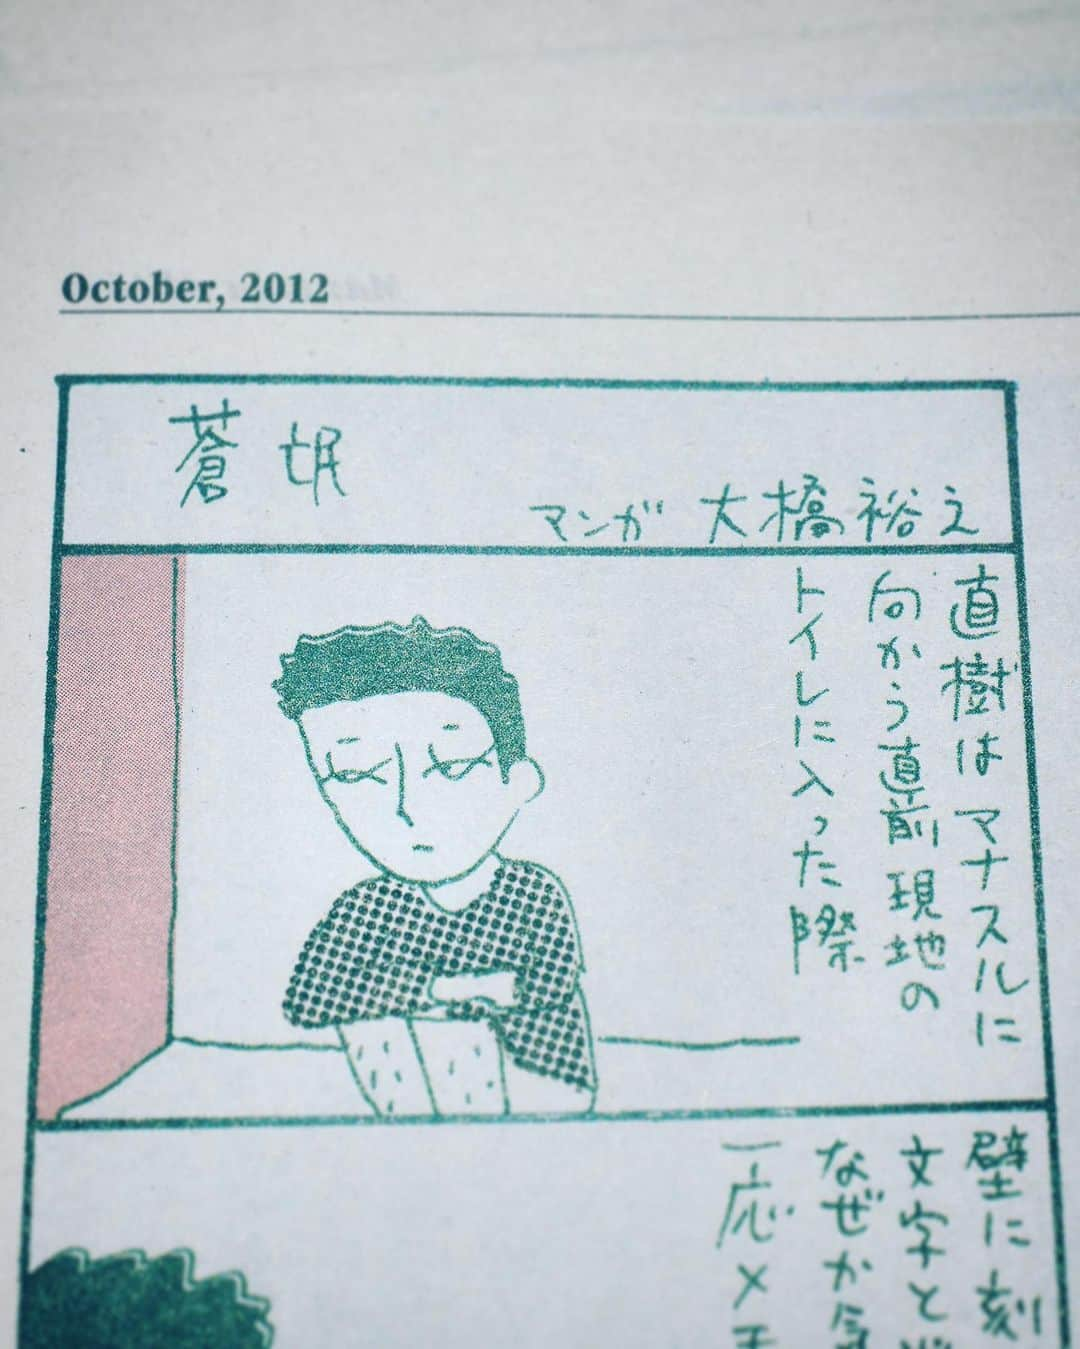 October, 2012
蒼氓
マンガ 大橋裕之
直樹はマナスルに
向かう直前現地の
トイレに入った際
壁に刻
文字と
なぜか気
一応メモ